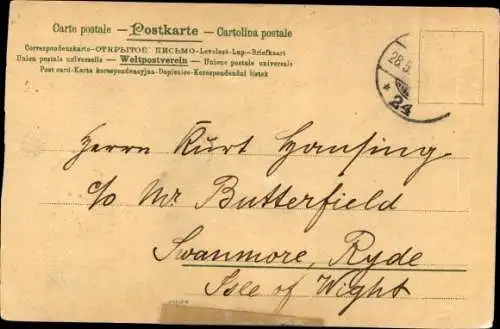 Carte postale – Postkarte – Cartolina postale
Correspondenzkarte-ОТКРЫТОЕ ПИСЬМО-Levelező-Lap-Briefkaart
Unica postale universelis – Weltpostverein – Unione postale universale
Post card-Karta korespondencyjna-Dopisnice-Korespondenčni listek
28.5.
* 24
Herrn Kurt Hansing
c/o Mr Butterfield
Swanmore, Ryde
Isle of Wight